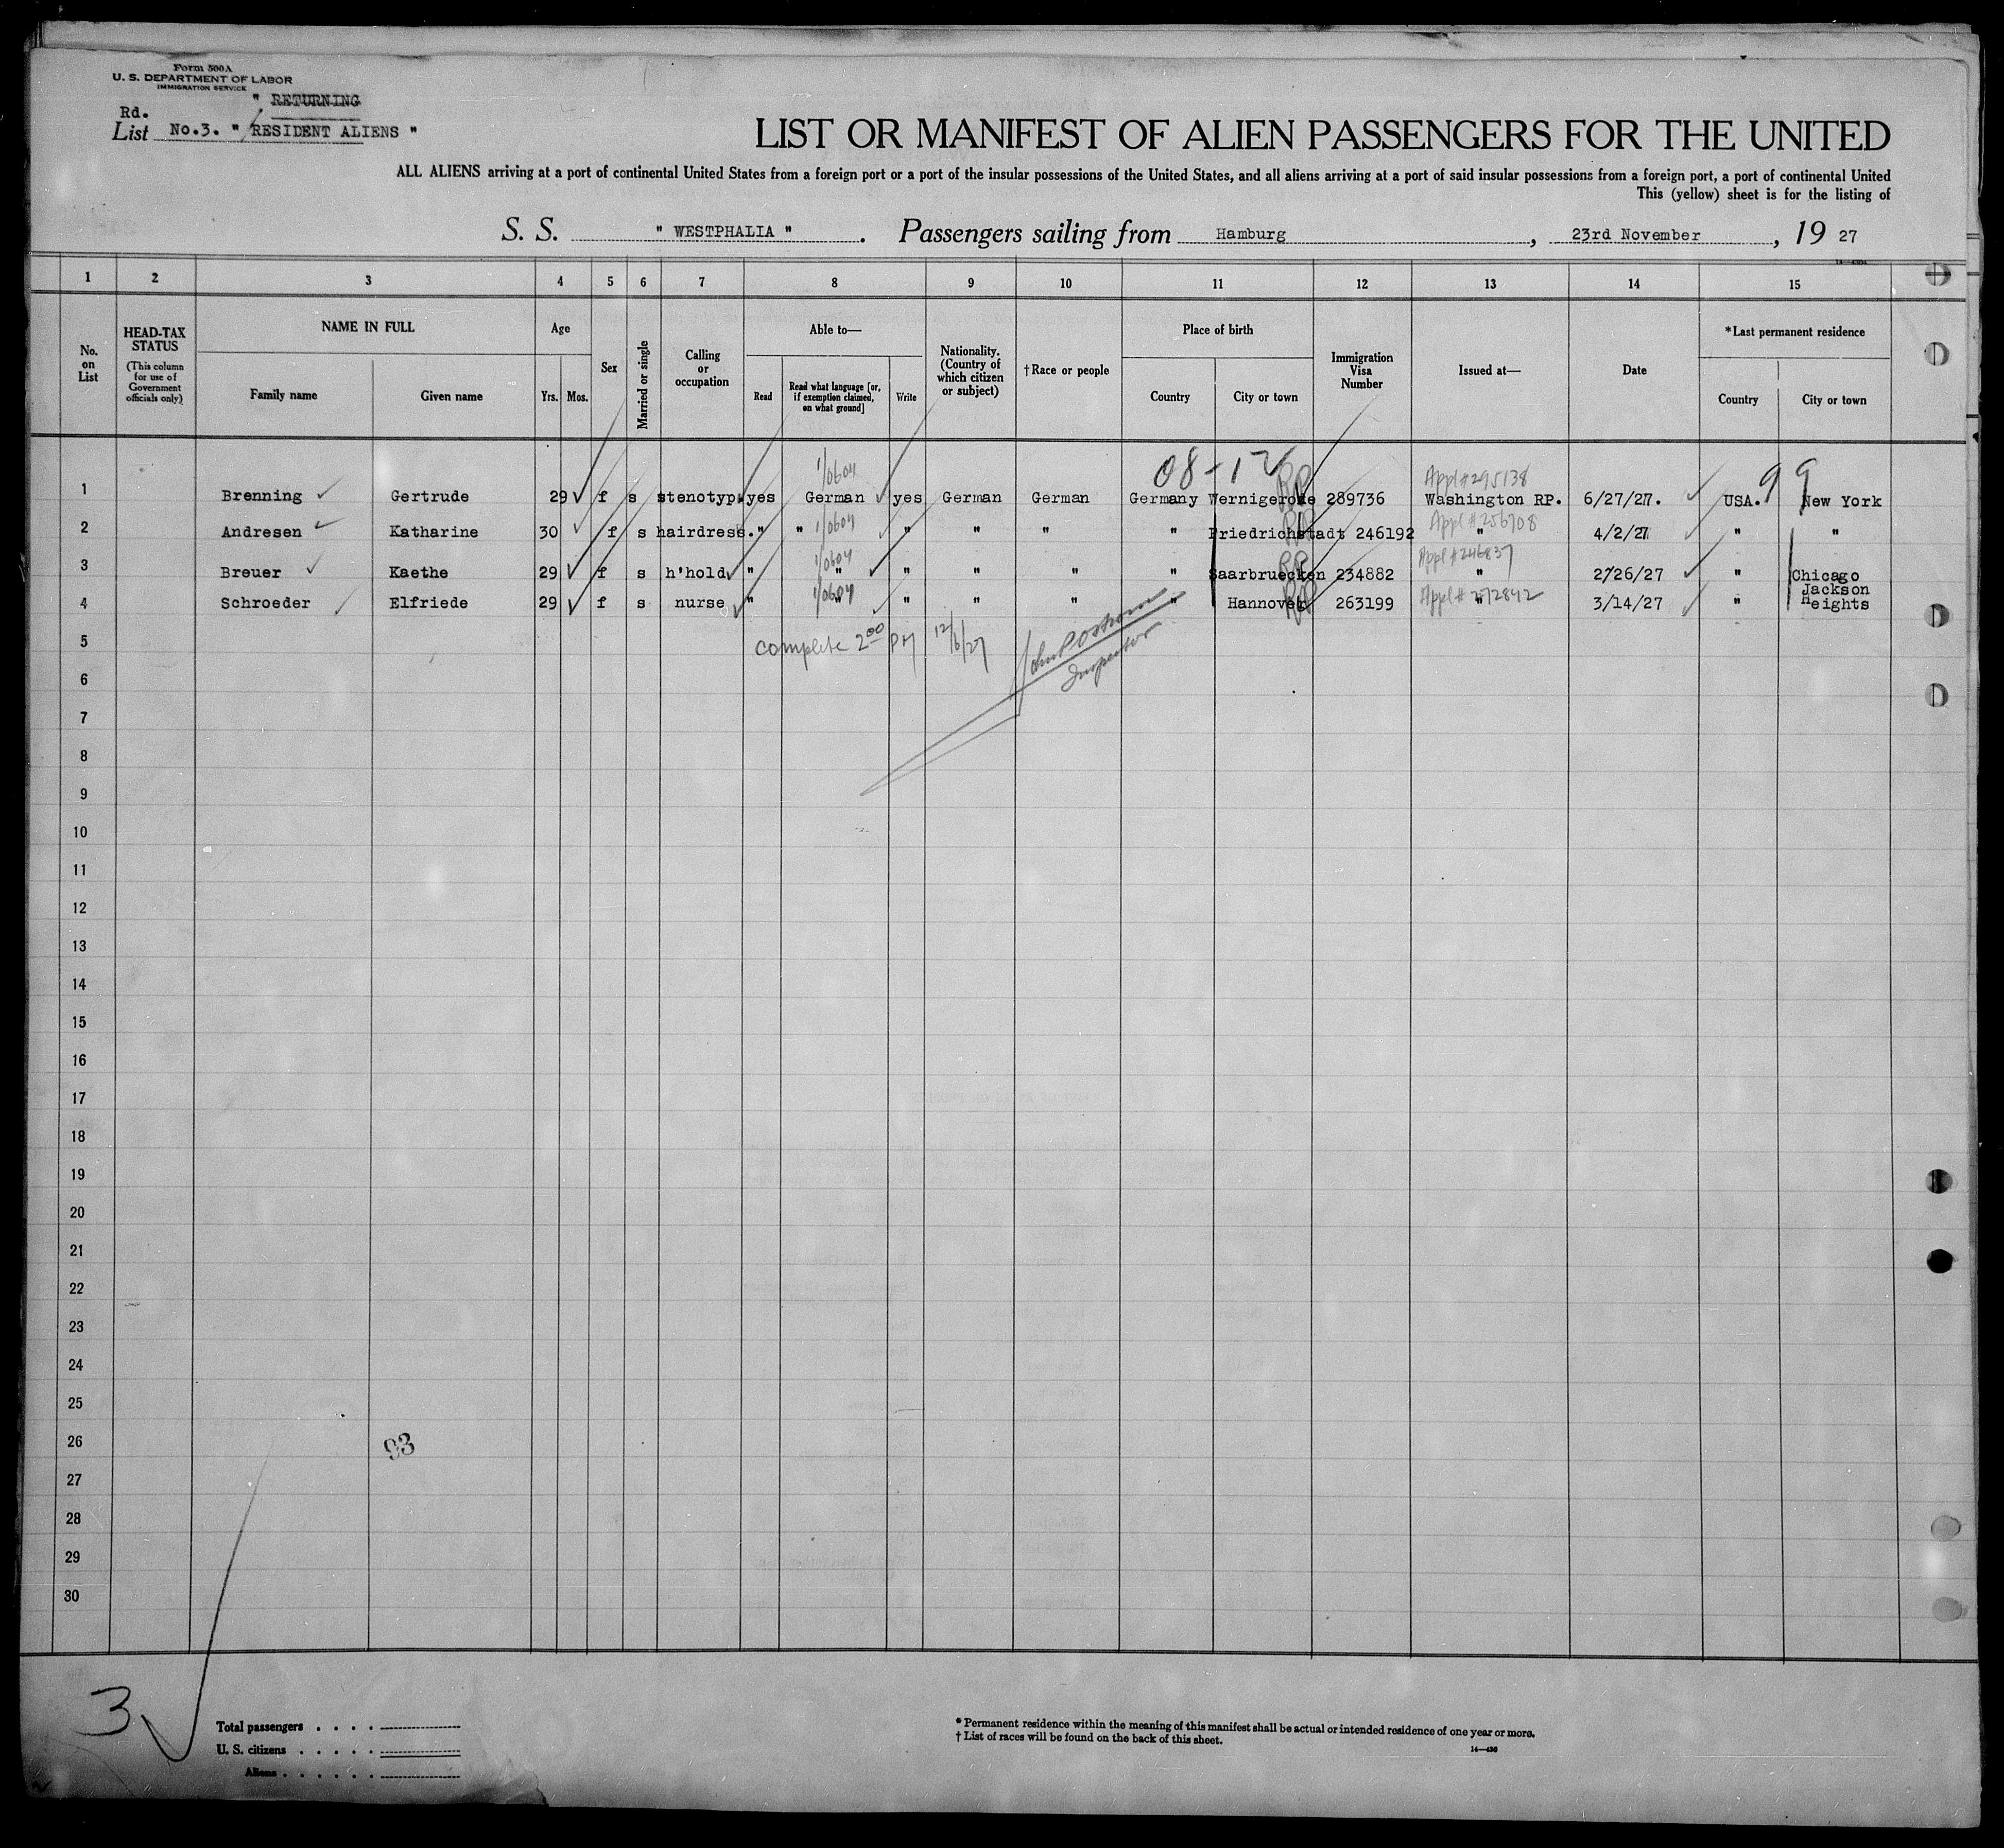 Form 500A
U. S. DEPARTMENT OF LABOR
IMMIGRATION SERVICE
" RETURNING
Rd.
List No.3. " RESIDENT ALIENS "
LIST OR MANIFEST OF ALIEN PASSENGERS FOR THE UNITED
ALL ALIENS arriving at a port of continental United States from a foreign port or a port of the insular possessions of the United States, and all aliens arriving at a port of said insular possessions from a foreign port, a port of continental United
This (yellow) sheet is for the listing of
S. S. " WESTPHALIA " . Passengers sailing from Hamburg , 23rd November , 19 27
1 2 3 4 5 6 7 8 9 10 11 12 13 14 15
No. on List
HEAD-TAX STATUS
(This column for use of Government officials only)
NAME IN FULL
Family name Given name
Age
Yrs. Mos.
Sex
Married or single
Calling or occupation
Able to—
Read
Read what language [or, if exemption claimed, on what ground]
Write
Nationality. (Country of which citizen or subject)
†Race or people
Place of birth
Country City or town
Immigration Visa Number
Issued at—
Date
*Last permanent residence
Country City or town
08-12 99
1/0604 Appl #295138
1 Brenning Gertrude 29 f s stenotyp. yes German yes German German Germany Wernigerode RP 289736 Washington RP. 6/27/27. USA. New York
1/0604 Appl #256708
2 Andresen Katharine 30 f s hairdress. " " " " " " Friedrichstadt RP 246192 " 4/2/27 " "
1/0604 Appl #246837
3 Breuer Kaethe 29 f s h'hold " " " " " " Saarbruecken RP 234882 " 2/26/27 " Chicago
1/0604 Appl #272842
4 Schroeder Elfriede 29 f s nurse " " " " " " Hannover RP 263199 " 3/14/27 " Jackson Heights
5 complete 2 00 PM 12/6/27
Inspector
6
7
8
9
10
11
12
13
14
15
16
17
18
19
20
21
22
23
24
25
26 93
27
28
29
30
3
Total passengers . . . .
U. S. citizens . . . . .
Aliens . . . . . .
* Permanent residence within the meaning of this manifest shall be actual or intended residence of one year or more.
† List of races will be found on the back of this sheet.
14—430